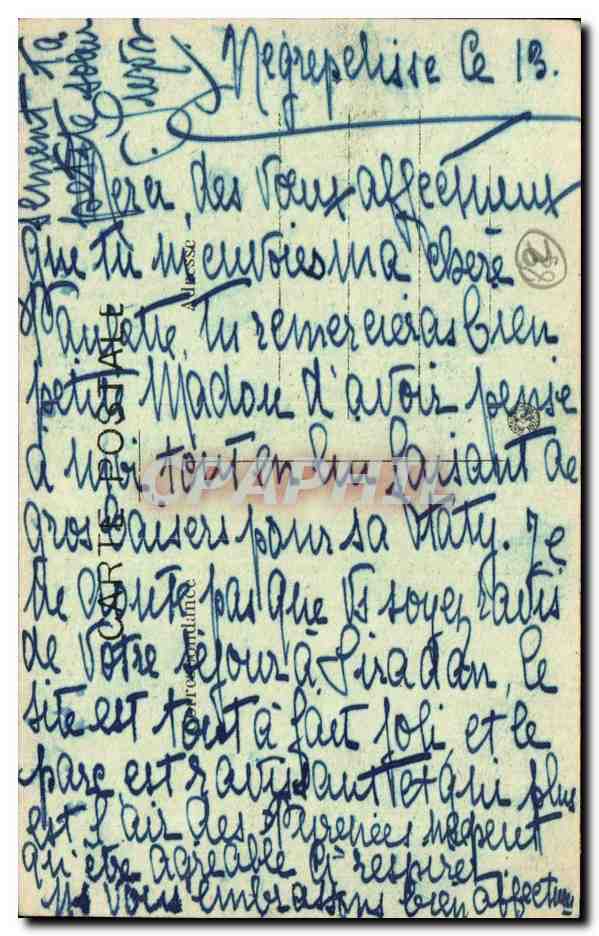 Negrepelisse le 13.
des vœux affectueux
que tu m'envoies ma chère
Paulette, tu remercieras bien
petit Madou d'avoir pensé
à moi tout en lui faisant de
gros baisers pour sa Taty. Je
ne doute pas que vs soyez ravis
de votre séjour à Siradan, le
site est tout à fait joli, et le
parc est ravissant et qui plus
est l'air des Pyrénées ne peut
qu'être agréable à respirer
Ns vous embrassons bien affectueu
sement ta
petite sœur
CARTE POSTALE
Correspondance
Adresse
82
CPAPHIL